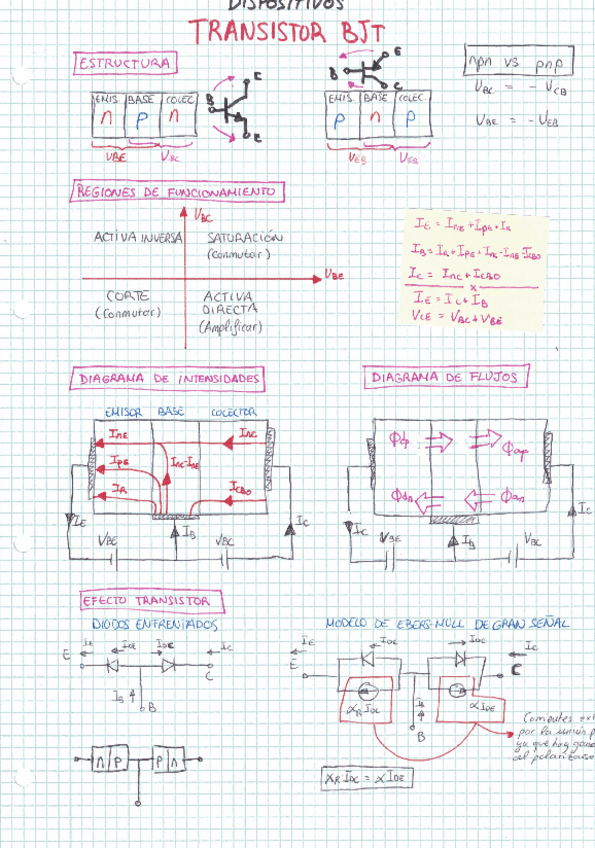 DISPOSITIVOS
TRANSISTOR BJT
ESTRUCTURA
C
B
E
EMIS BASE COLEC
n p n
VBE VBC
E
B
C
EMIS BASE COLEC.
p n p
VEB VCB
npn vs pnp
VBC = - VCB
VBE = - VEB
REGIONES DE FUNCIONAMIENTO
VBC
VBE
ACTIVA INVERSA
SATURACIÓN
(Conmutar)
CORTE
(Conmutar)
ACTIVA
DIRECTA
(Amplificar)
IE = InE + IpE + IR
IC = InC + ICBO
x
IE = IC + IB
VCE = VBC + VBE
DIAGRAMA DE INTENSIDADES
EMISOR BASE COLECTOR
InE
InC
IpE
InC-InE
IR
ICBO
IE
IB
IC
VBE
VBC
DIAGRAMA DE FLUJOS
Φdp
Φap
Φdn
Φan
IC
IB
IC
VBE
VBC
EFECTO TRANSISTOR
DIODOS ENFRENTADOS
IE IDE IDC IC
E
C
IB
B
n p p n
MODELO DE EBERS-NULL DE GRAN SEÑAL
IE IDC IDC IC
E
C
αR IDC
α IDE
IB
B
Corrientes
por la unión
ya que hay
al polarizarse
αR IDC = α IDE